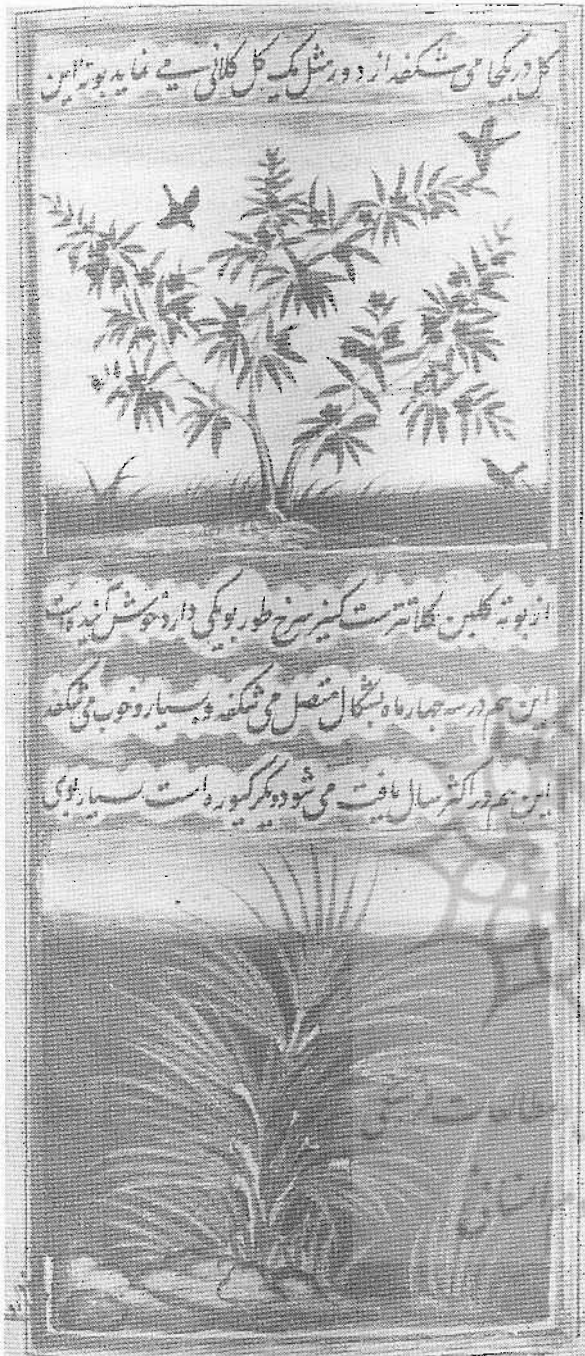 گل در یکجا می شکفد از دور مثل یک گل کلانی می نماید بوته این
از بوته گلبن کلانترست کنیر سرخ طور بویکی دارد خوش آینده است
این هم در سه چهار ماه بشکال متصل می شکفد و بسیار و خوب می شکفد
این هم در اکثر سال یافت می شود دیگر کیوره است بسیار بوی
مطالعات فرهنگی
انسانی